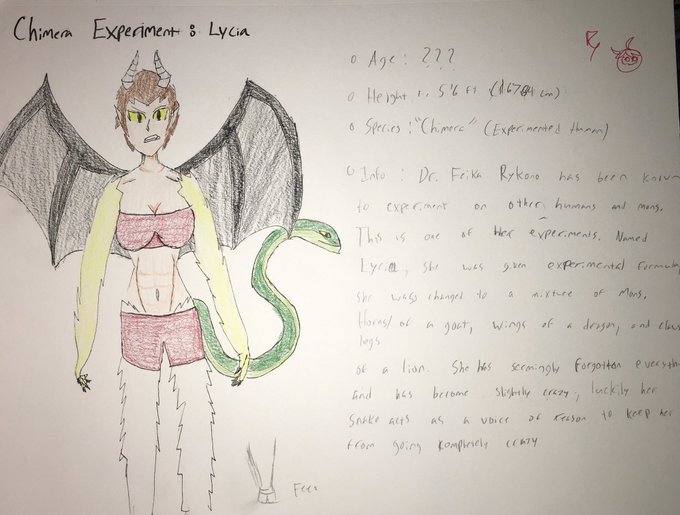 Chimera Experiment : Lycia
Ry
o Age : ???
o Height : 5'6 ft (167.64 cm)
o Species : "Chimera" (Experimented Human)
o Info : Dr. Feika Rykono has been known
to experiment on other humans and mons.
This is one of her experiments. Named
Lycia, she was given experimental formula,
she was changed to a mixture of Mons.
Horns/ of a goat, wings of a dragon, and claws
legs
of a lion. She has seemingly forgotten everyth
and has become slightly crazy, luckily her
snake acts as a voice of reason to keep her
from going kompletely crazy
Feet